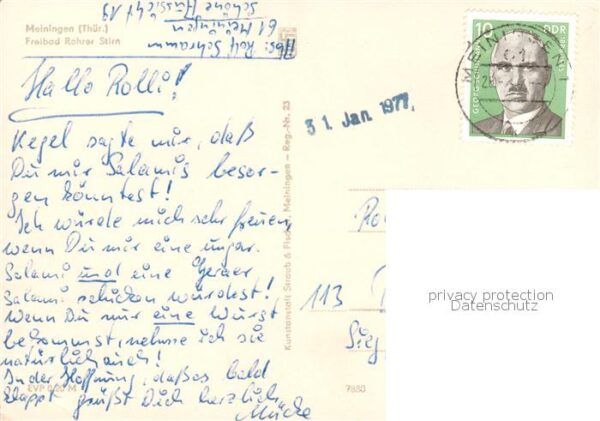 Meiningen (Thür.)
Freibad Rohrer Stirn
Abs: Rolf Schramm
61 Meiningen
Schöne Aussicht 19
Hallo Rolli!
Kegel sagte mir, daß
Du mir Salamis besor-
gen könntest!
Ich würde mich sehr freuen,
wenn Du mir eine ungar.
Salami und eine Geraer
Salami schicken würdest!
Wenn Du nur eine Wurst
bekommst, nehme ich sie
natürlich auch!
In der Hoffnung, daß es bald
klappt grüßt Dich herzlich
Mücke
EVP 0,20 M
7880
Kunstanstalt Straub & Fischer, Meiningen - Reg.-Nr. 23
31. Jan. 1977
10 DDR
MEININGEN 1
113
Sieg
privacy protection
Datenschutz